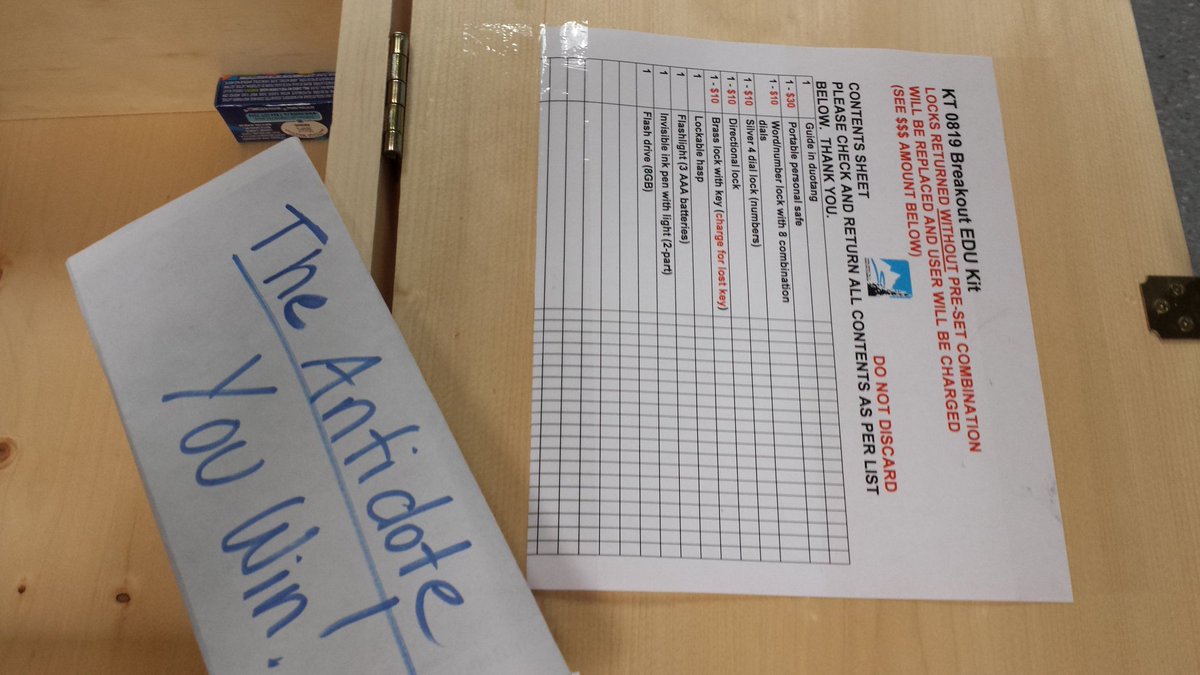 KT 0819 Breakout EDU Kit
LOCKS RETURNED WITHOUT PRE-SET COMBINATION
WILL BE REPLACED AND USER WILL BE CHARGED
(SEE $$$ AMOUNT BELOW)
DO NOT DISCARD
CONTENTS SHEET
PLEASE CHECK AND RETURN ALL CONTENTS AS PER LIST
BELOW. THANK YOU.
1 Guide in duotang
1 - $30 Portable personal safe
1 - $10 Word/number lock with 8 combination
dials
1 - $10 Silver 4 dial lock (numbers)
1 - $10 Directional lock
1 - $10 Brass lock with key (charge for lost key)
1 Lockable hasp
1 Flashlight (3 AAA batteries)
1 Invisible ink pen with light (2-part)
1 Flash drive (8GB)
The Antidote
You Win!